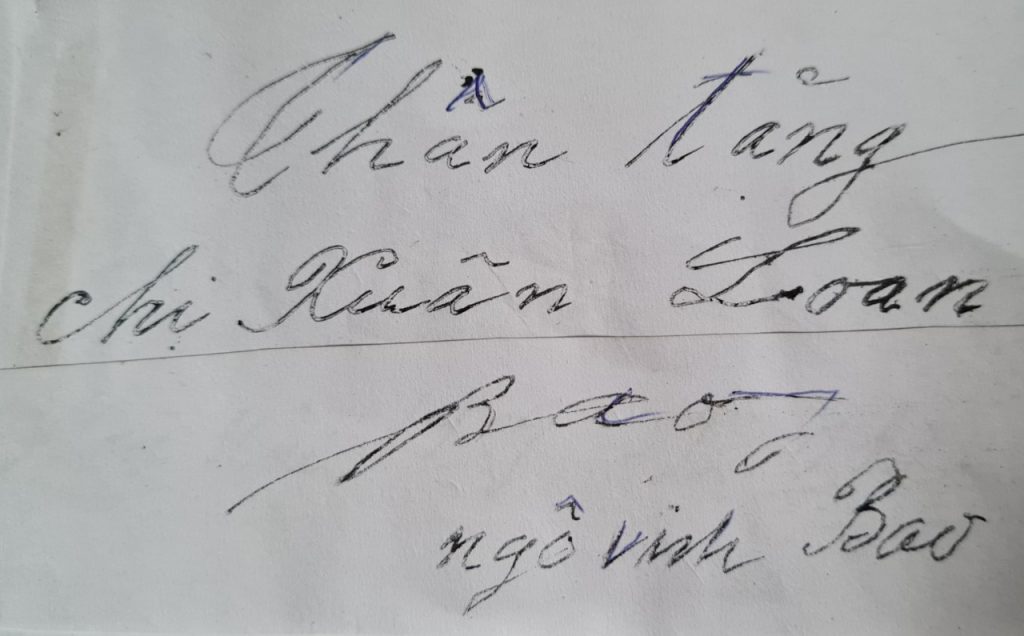 Thân tặng
chị Xuân Loan
Bao
ngô vinh Bao